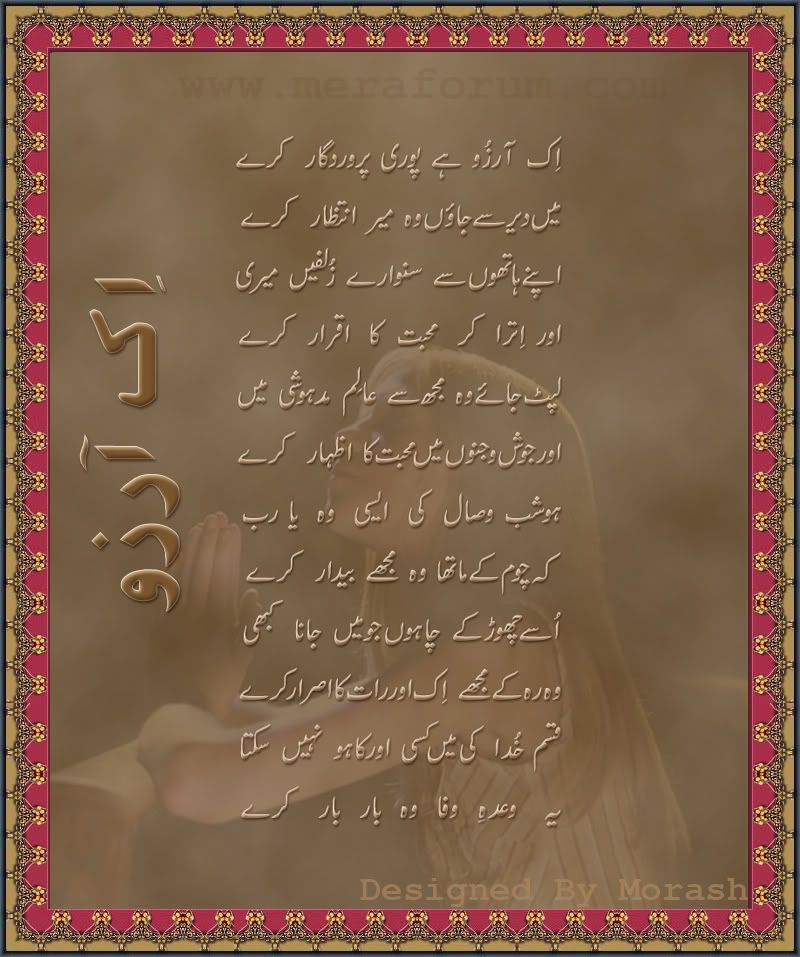 www.meraforum.com
اِک آرزو
اِک آرزُو ہے پوری پروردگار کرے
میں دیر سے جاؤں وہ میر انتظار کرے
اپنے ہاتھوں سے سنوارے زُلفیں میری
اور اِترا کر محبت کا اقرار کرے
لپٹ جائے وہ مجھ سے عالمِ مدہوشی میں
اور جوش و جنوں میں محبت کا اظہار کرے
ہو شب وصال کی ایسی وہ یا رب
کہ چوم کے ماتھا وہ مجھے بیدار کرے
اُسے چھوڑ کے چاہوں جو میں جانا کبھی
وہ رہ کے مجھے اِک اور رات کا اصرار کرے
قسم خُدا کی میں کسی اور کا ہو نہیں سکتا
یہ وعدہِ وفا وہ بار بار کرے
Designed By Morash